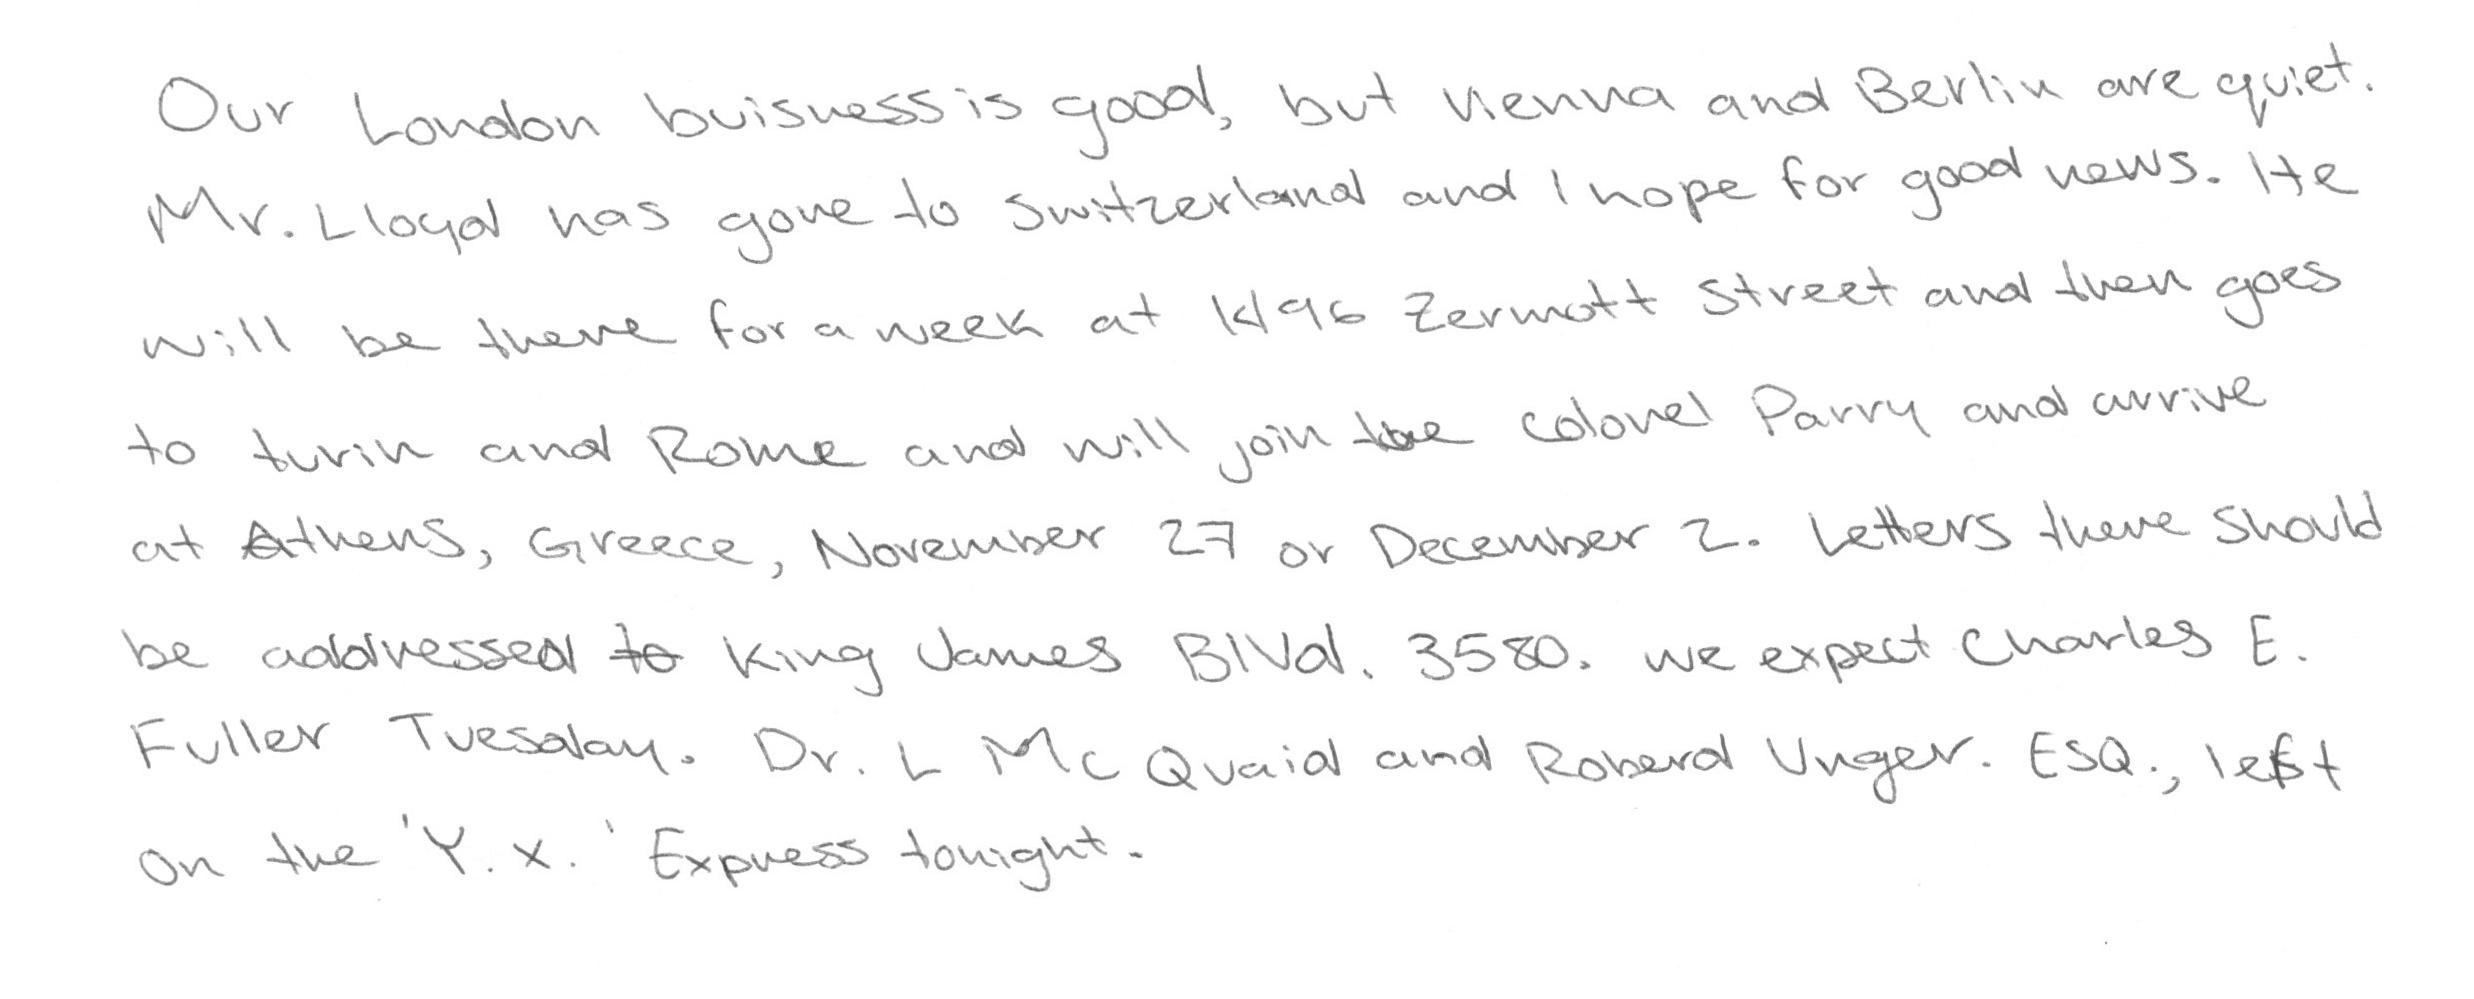 Our London buisness is good, but Vienna and Berlin are quiet.
Mr. Lloyd has gone to Switzerland and I hope for good news. He
will be there for a week at 1496 Zermott Street and then goes
to turin and Rome and will join the Colonel Parry and arrive
at Athens, Greece, November 27 or December 2. Letters there should
be addressed to King James Blvd. 3580. We expect Charles E.
Fuller Tuesday. Dr. L Mc Quaid and Roberd Unger. ESQ., left
on the 'Y. X.' Express tonight.